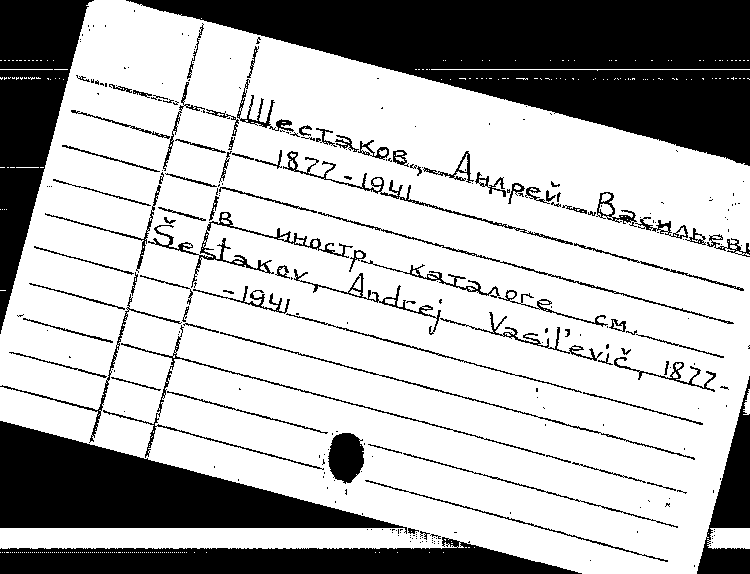 Шестаков, Андрей Васильеви
1877-1941
в иностр. каталоге см.
Šestakov, Andrej Vasil'evič, 1877-
-1941.